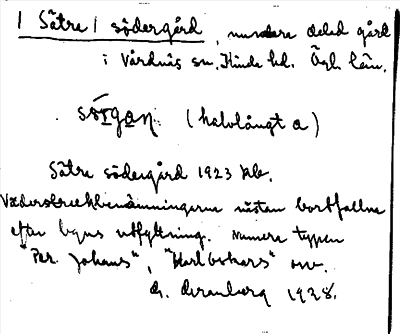 / Sätre / södergård, numera delad gård
i Vårdnäs sn. Kinda hd. Ögl. län.
sörgan (halvlångt a)
Sätre södergård 1923 kbr.
Väderstrecksbenämningarna nästan bortfallna
efter byns utflyttning. Numera typen
"Per Johans", "Karl Oskars" osv.
1928.